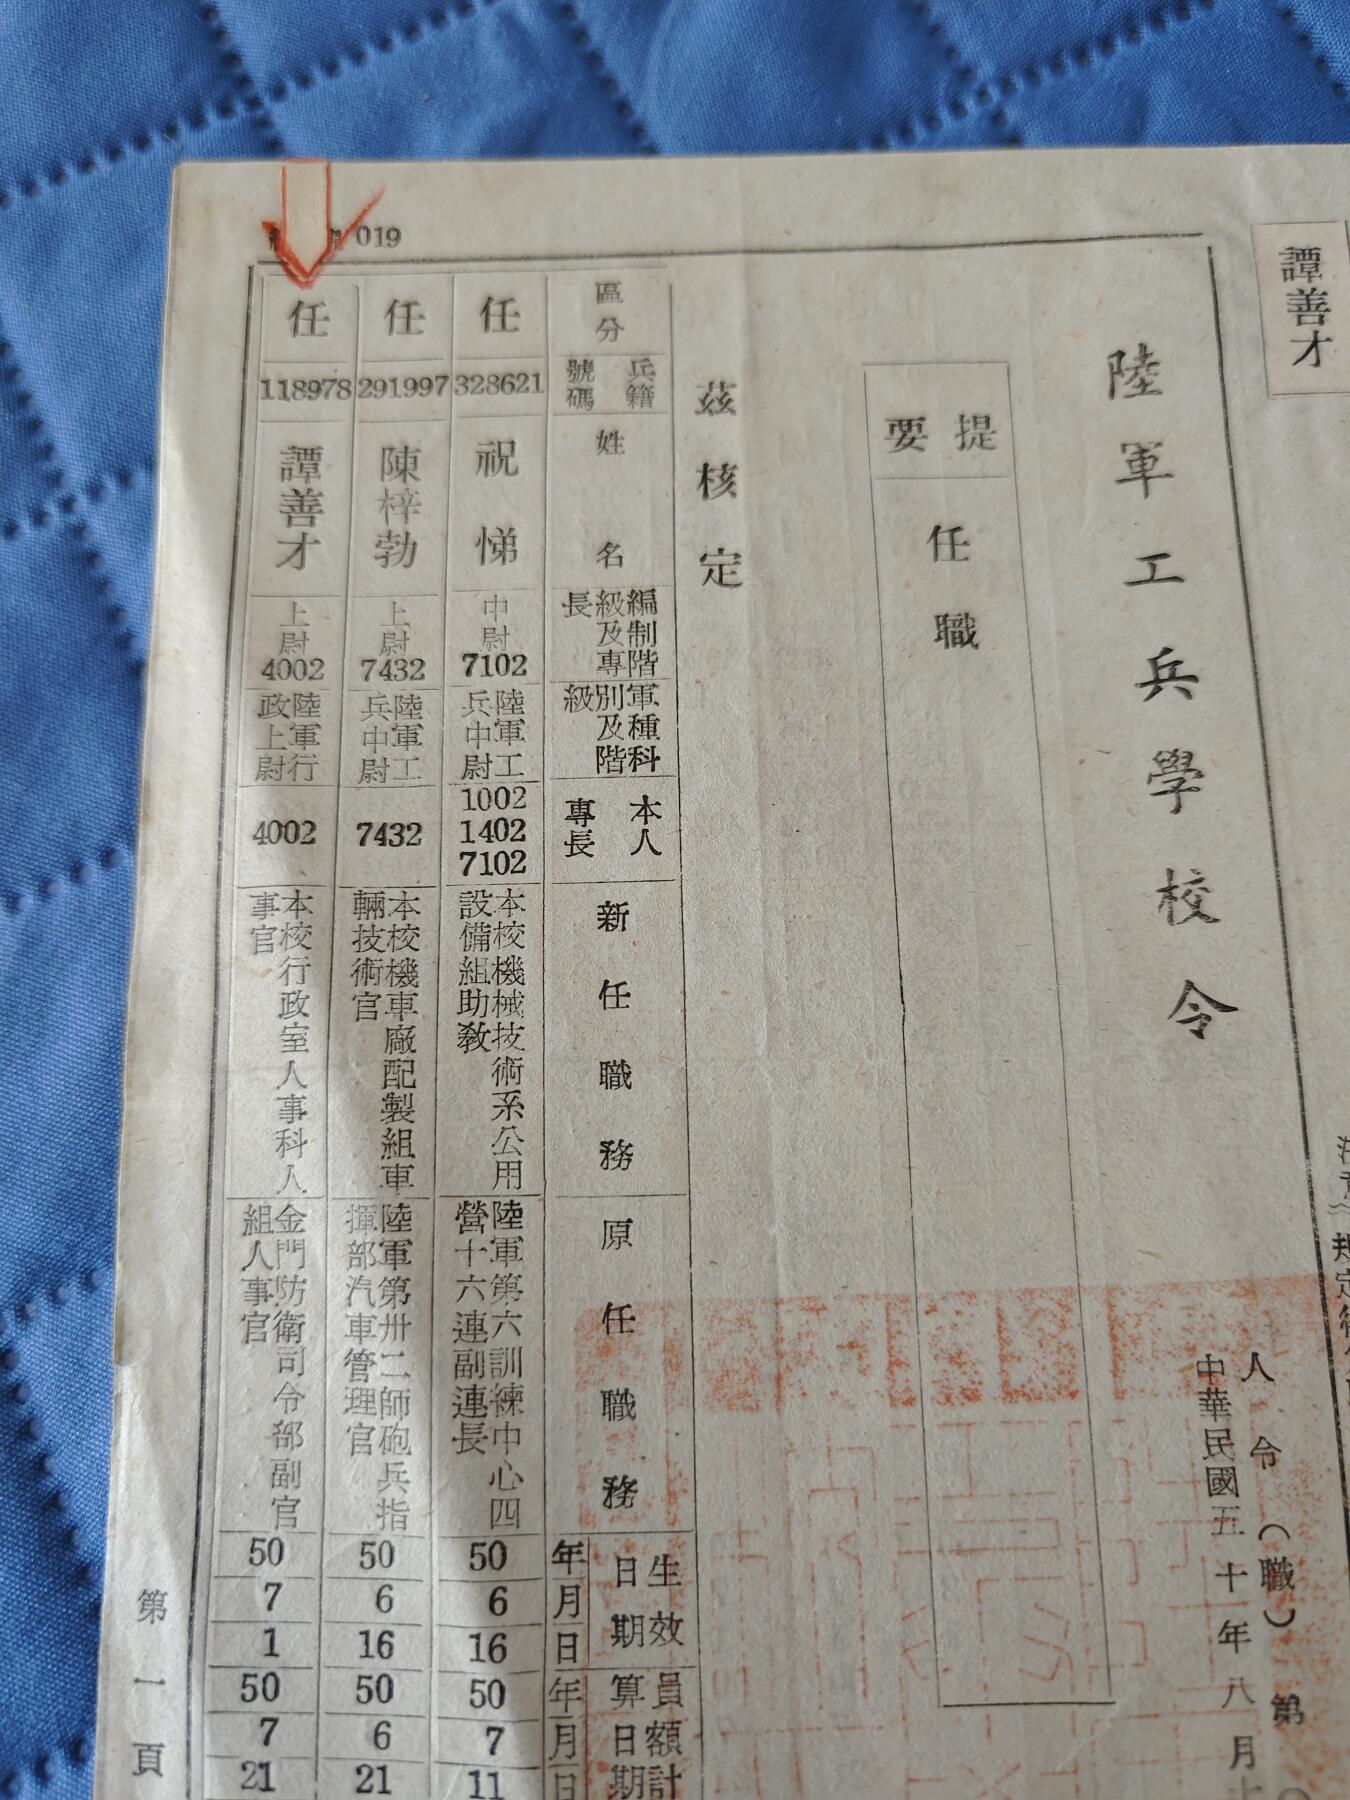 譚善才
陸軍工兵學校令
人令（職）第
中華民國五十年八月十
提要
任職
茲核定
區分
兵籍號碼
姓名
編制階級及專長
軍種科別及階級
本人專長
新任職務
原任職務
生效日期
年月日
員額計算日期
年月日
任
328621
祝悌
中尉
7102
陸軍工兵中尉
1002
1402
7102
本校機械技術系公用設備組助教
陸軍第六訓練中心四營十六連副連長
50
6
16
50
7
11
任
291997
陳梓勃
上尉
7432
陸軍工兵中尉
7432
本校機車廠配製組車輛技術官
陸軍第卅二師砲兵指揮部汽車管理官
50
6
16
50
6
21
任
118978
譚善才
上尉
4002
陸軍行政上尉
4002
本校行政室人事科人事官
金門防衛司令部副官組人事官
50
7
1
50
7
21
019
第一頁